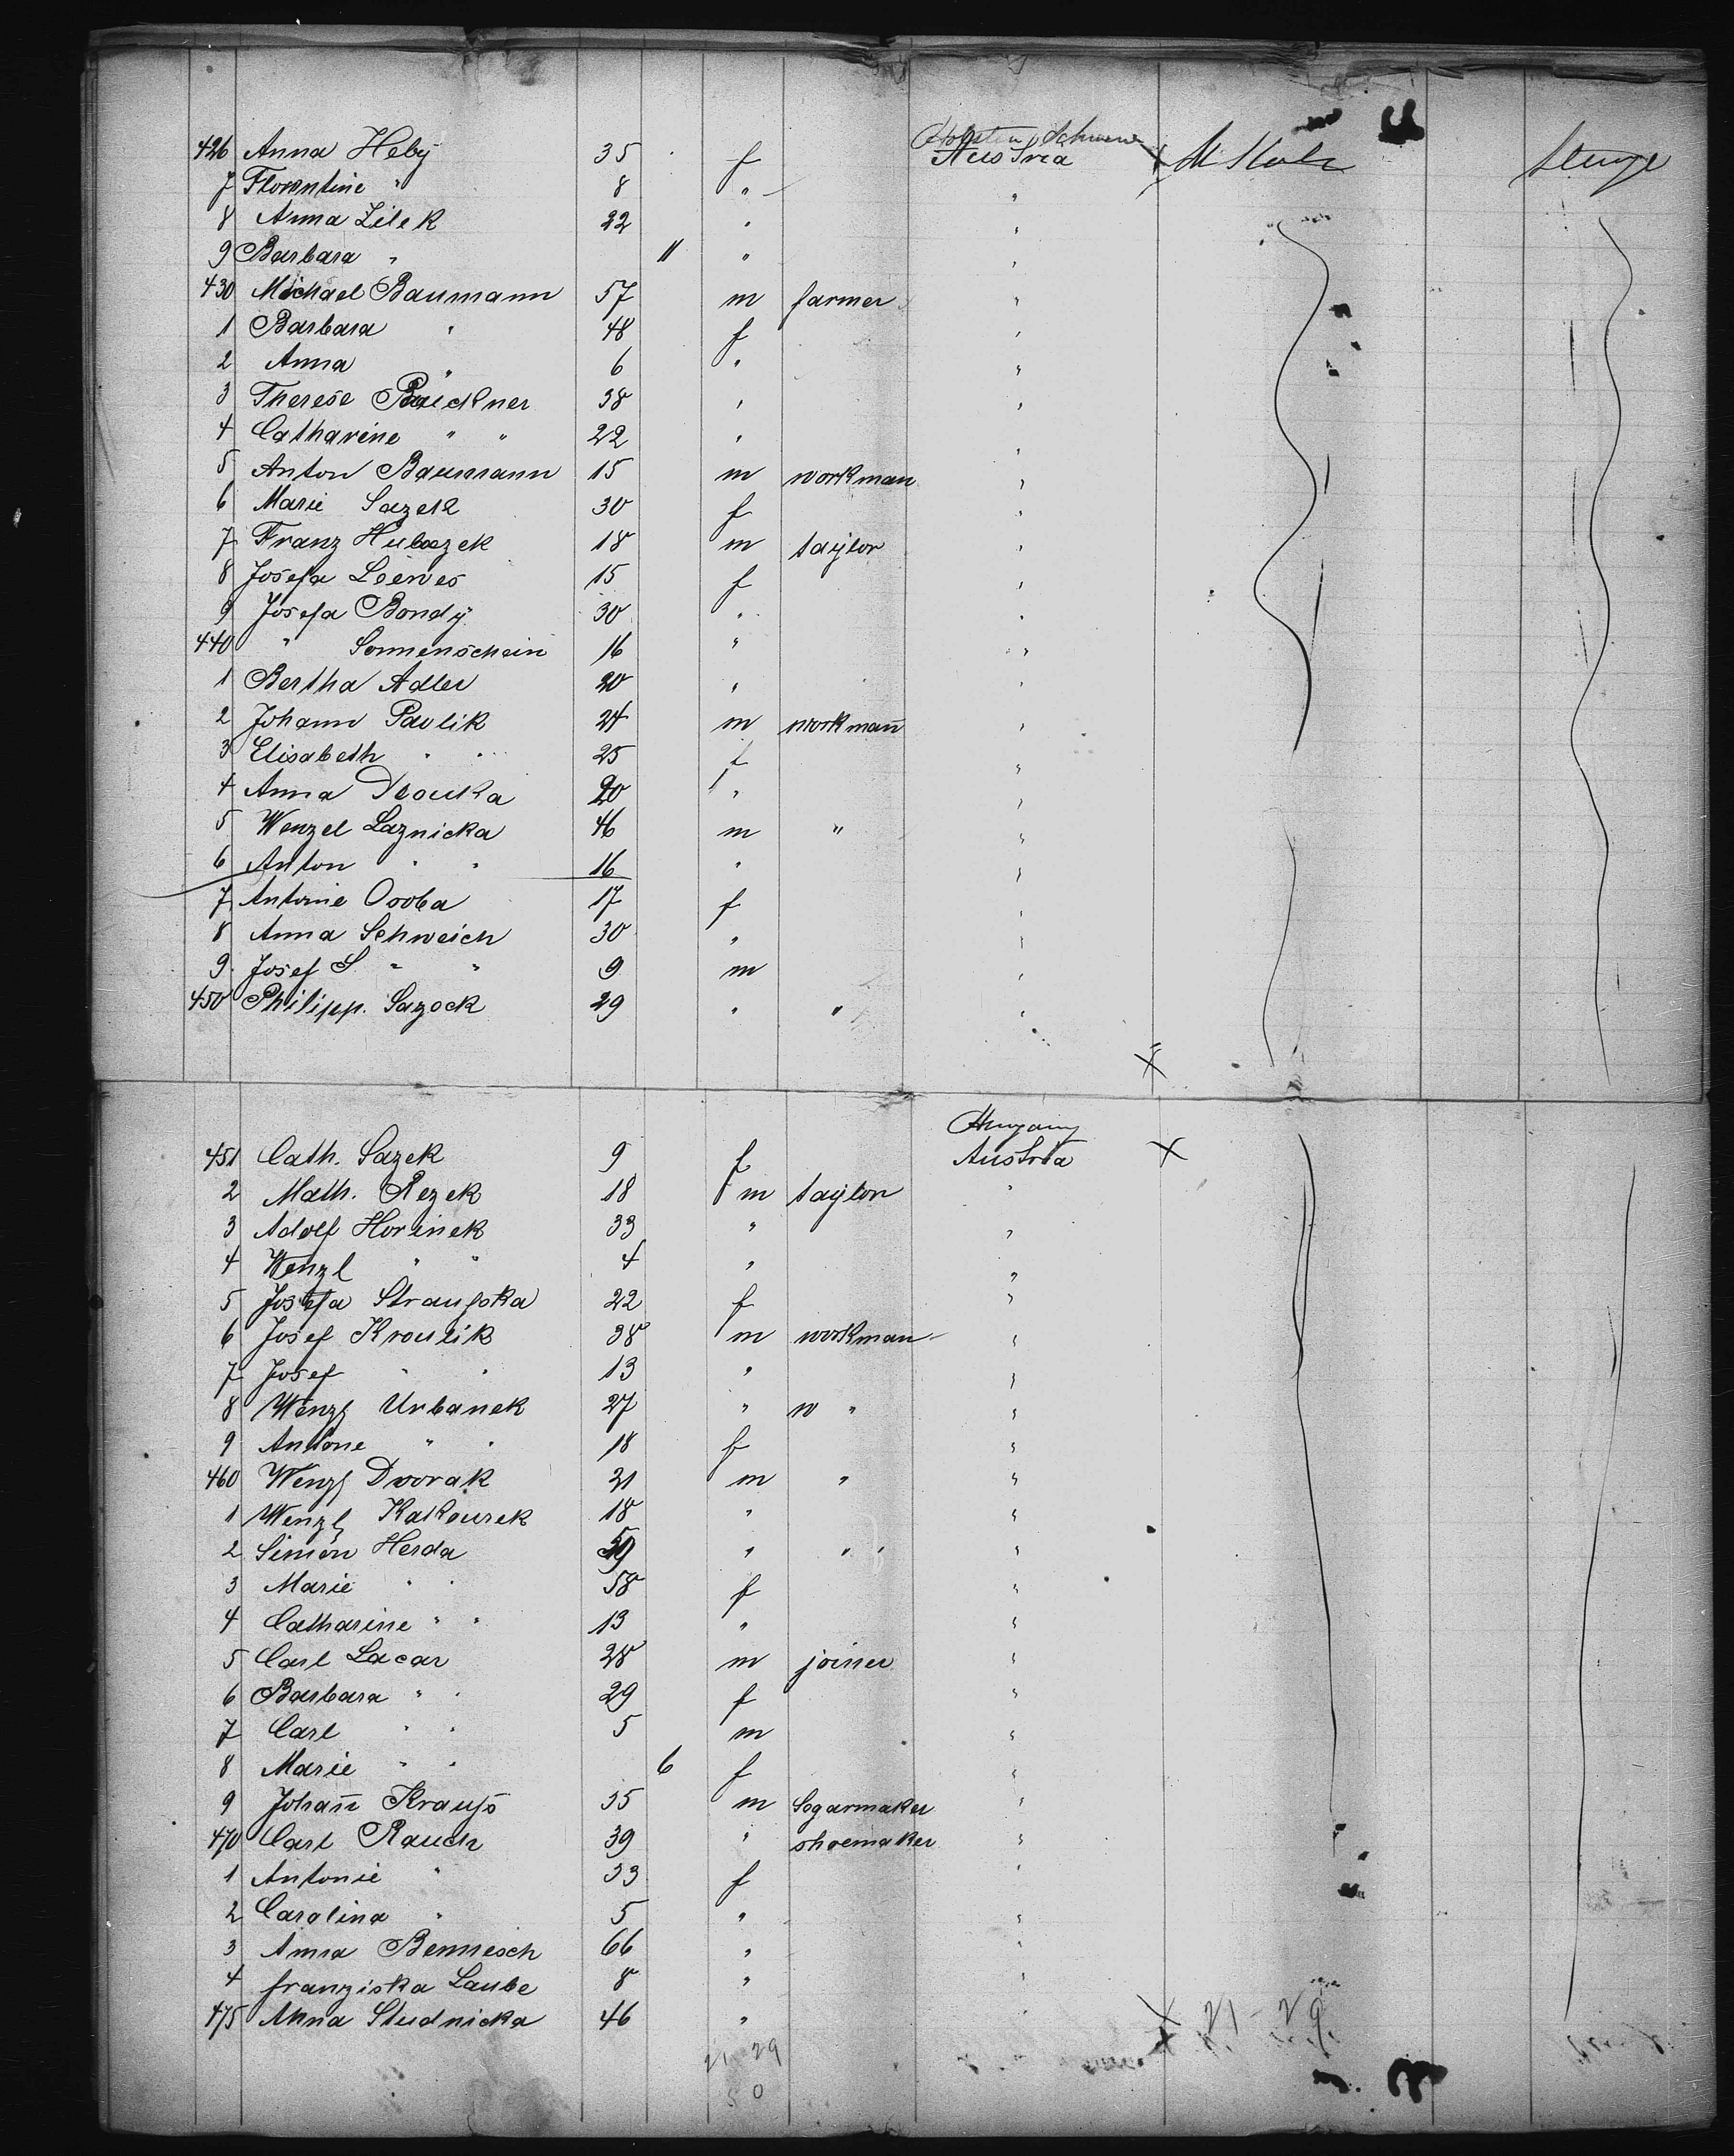 426 Anna Heby 35 f Austria
7 Florentine " 8 " "
8 Anna Zilek 22 " "
9 Barbara " 11 " "
430 Michael Baumann 57 m farmer "
1 Barbara " 48 f "
2 Anna " 6 " "
3 Therese 38 " "
4 Catharine " " 22 " "
5 Anton Baumann 15 m workman "
6 Marie Sazek 30 f "
7 Franz 18 m taylor "
8 Josefa Loewes 15 f "
9 Josefa Bondy 30 " "
440 " Sonnenschein 16 " "
1 Bertha Adler 20 " "
2 Johann Pavlik 24 m workman "
3 Elisabeth " " 25 f "
4 Anna 20 " "
5 Wenzel Laznicka 46 m " "
6 Anton " " 16 " "
7 Antonie 17 f "
8 Anna Schweich 30 " "
9 Josef S " " 9 m "
450 Philipp. Sazock 29 " " "
Hungary
451 Cath. Sazek 9 f Austria X
2 Math. Rezek 18 m taylor "
3 Adolf Horinek 33 " "
4 Wenzl " " 4 " "
5 Josefa Stranska 22 f "
6 Josef Kroulik 38 m workman "
7 Josef " " 13 " "
8 Wenzl Urbanek 27 " w " "
9 Antone " " 18 f "
460 Wenzl Dvorak 21 m " "
1 Wenzl Kakourek 18 " "
2 Simon Herda 59 " " "
3 Marie " " 58 f "
4 Catharine " " 13 " "
5 Carl Lacar 28 m joiner "
6 Barbara " " 29 f "
7 Carl " " 5 m "
8 Marie " " 6 f "
9 Johann Krauss 35 m Segarmaker "
470 Carl Rauch 39 " shoemaker "
1 Antonie " 33 f "
2 Carolina " 5 " "
3 Anna Bennesch 66 " "
4 franziska Laube 8 " "
475 Anna Studnicka 46 " " X 21-29
21 29